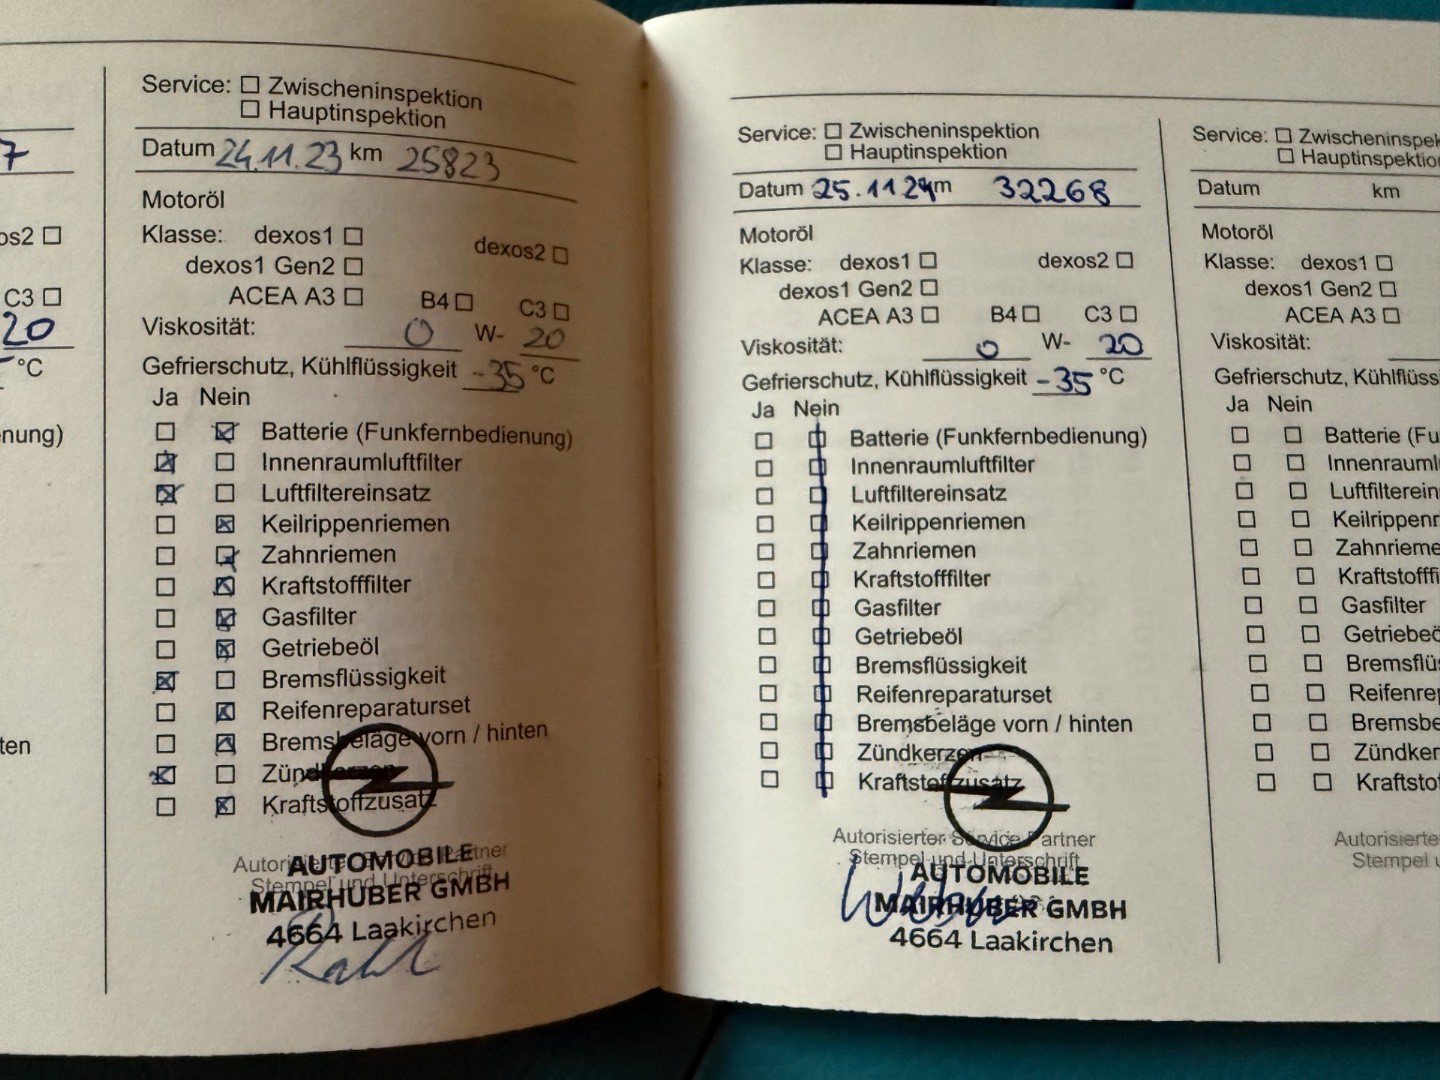 7
os2
C3
20
°C
nung)
ten
Service: Zwischeninspektion
Hauptinspektion
Datum 24.11.23 km 25823
Motoröl
Klasse: dexos1 dexos2
dexos1 Gen2
ACEA A3 B4 C3
Viskosität: 0 W- 20
Gefrierschutz, Kühlflüssigkeit -35 °C
Ja Nein
Batterie (Funkfernbedienung)
Innenraumluftfilter
Luftfiltereinsatz
Keilrippenriemen
Zahnriemen
Kraftstofffilter
Gasfilter
Getriebeöl
Bremsflüssigkeit
Reifenreparaturset
Bremsbeläge vorn / hinten
Zündkerzen
Kraftstoffzusatz
Autorisierter Service Partner
Stempel und Unterschrift
AUTOMOBILE
MAIRHUBER GMBH
4664 Laakirchen
Service: Zwischeninspektion
Hauptinspektion
Datum 25.11.24 km 32268
Motoröl
Klasse: dexos1 dexos2
dexos1 Gen2
ACEA A3 B4 C3
Viskosität: 0 W- 20
Gefrierschutz, Kühlflüssigkeit -35 °C
Ja Nein
Batterie (Funkfernbedienung)
Innenraumluftfilter
Luftfiltereinsatz
Keilrippenriemen
Zahnriemen
Kraftstofffilter
Gasfilter
Getriebeöl
Bremsflüssigkeit
Reifenreparaturset
Bremsbeläge vorn / hinten
Zündkerzen
Kraftstoffzusatz
Autorisierter Service Partner
Stempel und Unterschrift
AUTOMOBILE
MAIRHUBER GMBH
4664 Laakirchen
Service: Zwischeninspek
Hauptinspektio
Datum km
Motoröl
Klasse: dexos1
dexos1 Gen2
ACEA A3
Viskosität:
Gefrierschutz, Kühlflüss
Ja Nein
Batterie (Fu
Innenrauml
Luftfilterein
Keilrippenr
Zahnrieme
Kraftstofffi
Gasfilter
Getriebeö
Bremsflüs
Reifenrep
Bremsbe
Zündker
Kraftsto
Autorisierte
Stempel u